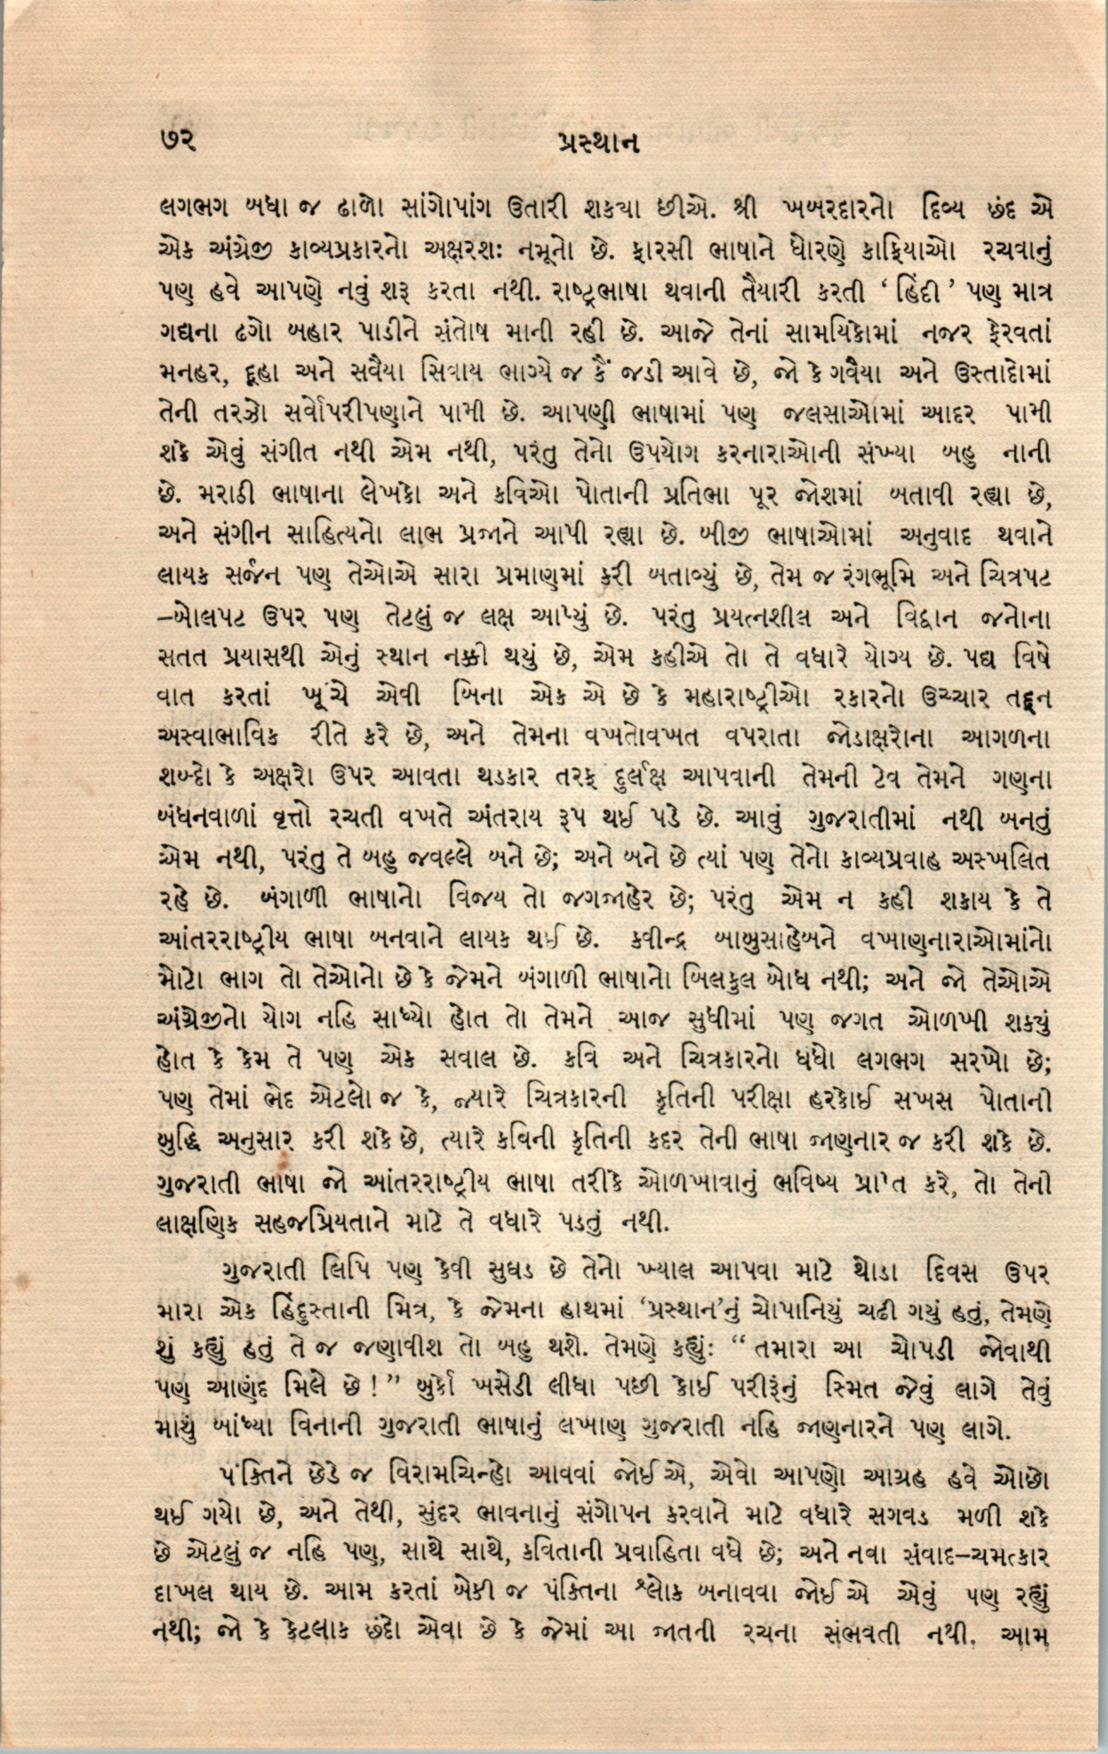 ૭૨
પ્રસ્થાન
લગભગ બધા જ ઢાળો સાંગોપાંગ ઉતારી શક્યા છીએ. શ્રી ખબરદારનો દિવ્ય છંદ એ
એક અંગ્રેજી કાવ્યપ્રકારનો અક્ષરશઃ નમૂનો છે. ફારસી ભાષાને ધોરણે કાફિયાઓ રચવાનું
પણ હવે આપણે નવું શરૂ કરતા નથી. રાષ્ટ્રભાષા થવાની તૈયારી કરતી ‘હિંદી’ પણ માત્ર
ગદ્યના ઢગો બહાર પાડીને સંતોષ માની રહી છે. આજે તેનાં સામયિકોમાં નજર ફેરવતાં
મનહર, દૂહા અને સવૈયા સિવાય ભાગ્યે જ કૈં જડી આવે છે, જો કે ગવૈયા અને ઉસ્તાદોમાં
તેની તરઝો સર્વોપરીપણાને પામી છે. આપણી ભાષામાં પણ જલસાઓમાં આદર પામી
શકે એવું સંગીત નથી એમ નથી, પરંતુ તેનો ઉપયોગ કરનારાઓની સંખ્યા બહુ નાની
છે. મરાઠી ભાષાના લેખકો અને કવિઓ પોતાની પ્રતિભા પૂર જોશમાં બતાવી રહ્યા છે,
અને સંગીન સાહિત્યનો લાભ પ્રજાને આપી રહ્યા છે. બીજી ભાષાઓમાં અનુવાદ થવાને
લાયક સર્જન પણ તેઓએ સારા પ્રમાણમાં કરી બતાવ્યું છે, તેમ જ રંગભૂમિ અને ચિત્રપટ
–બોલપટ ઉપર પણ તેટલું જ લક્ષ આપ્યું છે. પરંતુ પ્રયત્નશીલ અને વિદ્વાન જનોના
સતત પ્રયાસથી એનું સ્થાન નક્કી થયું છે, એમ કહીએ તો તે વધારે યોગ્ય છે. પદ્ય વિષે
વાત કરતાં ખૂંચે એવી બિના એક એ છે કે મહારાષ્ટ્રીઓ રકારનો ઉચ્ચાર તદ્દન
અસ્વાભાવિક રીતે કરે છે, અને તેમના વખતોવખત વપરાતા જોડાક્ષરોના આગળના
શબ્દો કે અક્ષરો ઉપર આવતા થડકાર તરફ દુર્લક્ષ આપવાની તેમની ટેવ તેમને ગણના
બંધનવાળાં વૃત્તો રચતી વખતે અંતરાય રૂપ થઈ પડે છે. આવું ગુજરાતીમાં નથી બનતું
એમ નથી, પરંતુ તે બહુ જવલ્લે બને છે; અને બને છે ત્યાં પણ તેનો કાવ્યપ્રવાહ અસ્ખલિત
રહે છે. બંગાળી ભાષાનો વિજય તો જગજાહેર છે; પરંતુ એમ ન કહી શકાય કે તે
આંતરરાષ્ટ્રીય ભાષા બનવાને લાયક થઈ છે. કવીન્દ્ર બાબુસાહેબને વખાણનારાઓમાંનો
મોટો ભાગ તો તેઓનો છે કે જેમને બંગાળી ભાષાનો બિલકુલ બોધ નથી; અને જો તેઓએ
અંગ્રેજીનો યોગ નહિ સાધ્યો હોત તો તેમને આજ સુધીમાં પણ જગત ઓળખી શક્યું
હોત કે કેમ તે પણ એક સવાલ છે. કવિ અને ચિત્રકારનો ધંધો લગભગ સરખો છે;
પણ તેમાં ભેદ એટલો જ કે, જ્યારે ચિત્રકારની કૃતિની પરીક્ષા હરકોઈ સખસ પોતાની
બુદ્ધિ અનુસાર કરી શકે છે, ત્યારે કવિની કૃતિની કદર તેની ભાષા જાણનાર જ કરી શકે છે.
ગુજરાતી ભાષા જો આંતરરાષ્ટ્રીય ભાષા તરીકે ઓળખાવાનું ભવિષ્ય પ્રાપ્ત કરે, તો તેની
લાક્ષણિક સહજપ્રિયતાને માટે તે વધારે પડતું નથી.
ગુજરાતી લિપિ પણ કેવી સુઘડ છે તેનો ખ્યાલ આપવા માટે થોડા દિવસ ઉપર
મારા એક હિંદુસ્તાની મિત્ર, કે જેમના હાથમાં ‘પ્રસ્થાન’નું ચોપાનિયું ચઢી ગયું હતું, તેમણે
શું કહ્યું હતું તે જ જણાવીશ તો બહુ થશે. તેમણે કહ્યુંઃ “તમારા આ ચોપડી જોવાથી
પણ આણંદ મિલે છે!” બુર્કો ખસેડી લીધા પછી કોઈ પરીરૂંનું સ્મિત જેવું લાગે તેવું
માથું બાંધ્યા વિનાની ગુજરાતી ભાષાનું લખાણ ગુજરાતી નહિ જાણનારને પણ લાગે.
પંક્તિને છેડે જ વિરામચિન્હો આવવાં જોઈએ, એવો આપણો આગ્રહ હવે ઓછો
થઈ ગયો છે, અને તેથી, સુંદર ભાવનાનું સંગોપન કરવાને માટે વધારે સગવડ મળી શકે
છે એટલું જ નહિ પણ, સાથે સાથે, કવિતાની પ્રવાહિતા વધે છે; અને નવા સંવાદ–ચમત્કાર
દાખલ થાય છે. આમ કરતાં બેકી જ પંક્તિના શ્લોક બનાવવા જોઈએ એવું પણ રહ્યું
નથી; જો કે કેટલાક છંદો એવા છે કે જેમાં આ જાતની રચના સંભવતી નથી. આમ